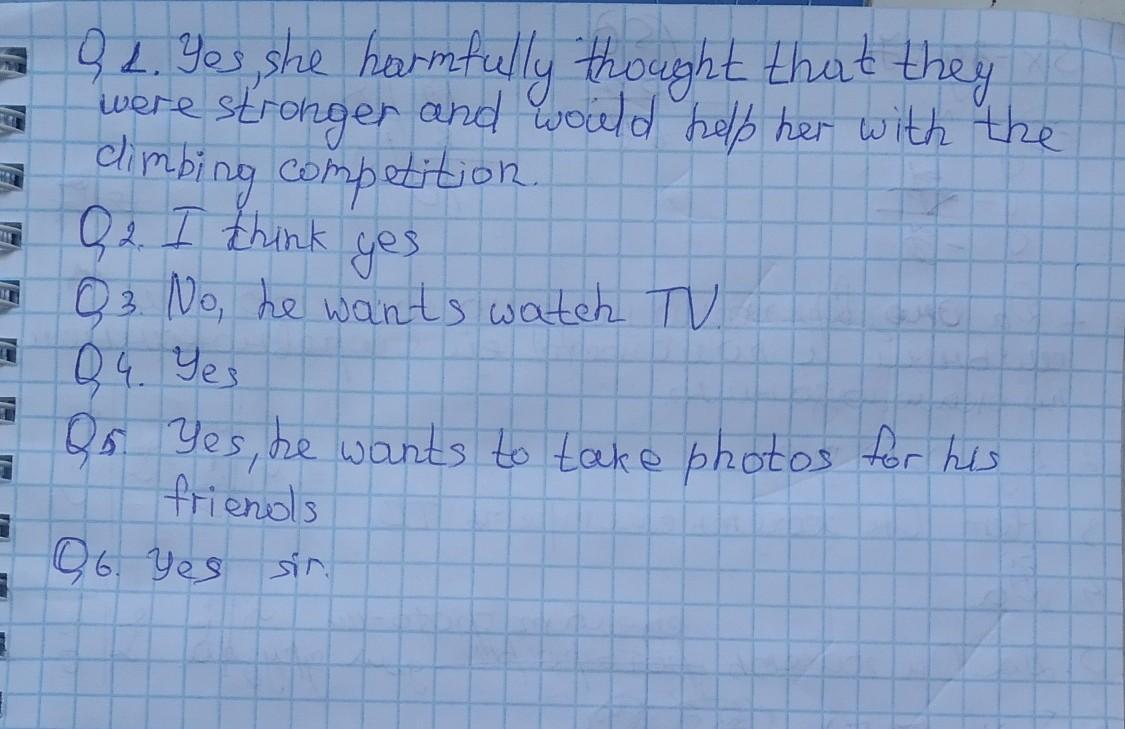 Q1. Yes, she harmfully thought that they
were stronger and would help her with the
climbing competition.
Q2. I think yes
Q3. No, he wants watch TV.
Q4. Yes
Q5. Yes, he wants to take photos for his
friends
Q6. Yes sir.